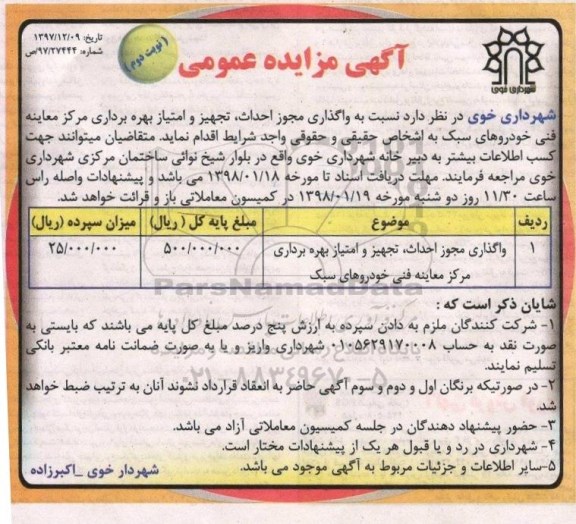 تاریخ: ۱۳۹۷/۱۲/۰۹
شماره: ۹۷/۲۷۴۴۴/ص
(نوبت دوم)
آگهی مزایده عمومی
شهرداری خوی
شهرداری خوی در نظر دارد نسبت به واگذاری مجوز احداث، تجهیز و امتیاز بهره برداری مرکز معاینه
فنی خودروهای سبک به اشخاص حقیقی و حقوقی واجد شرایط اقدام نماید. متقاضیان میتوانند جهت
کسب اطلاعات بیشتر به دبیر خانه شهرداری خوی واقع در بلوار شیخ نوائی ساختمان مرکزی شهرداری
خوی مراجعه فرمایند. مهلت دریافت اسناد تا مورخه ۱۳۹۸/۰۱/۱۸ می باشد و پیشنهادات واصله راس
ساعت ۱۱/۳۰ روز دو شنبه مورخه ۱۳۹۸/۰۱/۱۹ در کمیسیون معاملاتی باز و قرائت خواهد شد.
ردیف موضوع مبلغ پایه کل ( ریال) میزان سپرده (ریال)
۱ واگذاری مجوز احداث، تجهیز و امتیاز بهره برداری ۵۰۰/۰۰۰/۰۰۰ ۲۵/۰۰۰/۰۰۰
مرکز معاینه فنی خودروهای سبک
ParsNamadData
شایان ذکر است که :
۱- شرکت کنندگان ملزم به دادن سپرده به ارزش پنج درصد مبلغ کل پایه می باشند که بایستی به
صورت نقد به حساب ۰۱۰۵۶۲۹۱۷۰۰۰۸ شهرداری واریز و یا به صورت ضمانت نامه معتبر بانکی
تسلیم نمایند.
۰۲۱-۸۸۳۴۹۶۷۰-۵
۲- در صورتیکه برنگان اول و دوم و سوم آگهی حاضر به انعقاد قرارداد نشوند آنان به ترتیب ضبط خواهد
شد.
۳- حضور پیشنهاد دهندگان در جلسه کمیسیون معاملاتی آزاد می باشد.
۴- شهرداری در رد و یا قبول هر یک از پیشنهادات مختار است.
۵-سایر اطلاعات و جزئیات مربوط به آگهی موجود می باشد.
شهردار خوی _اکبرزاده